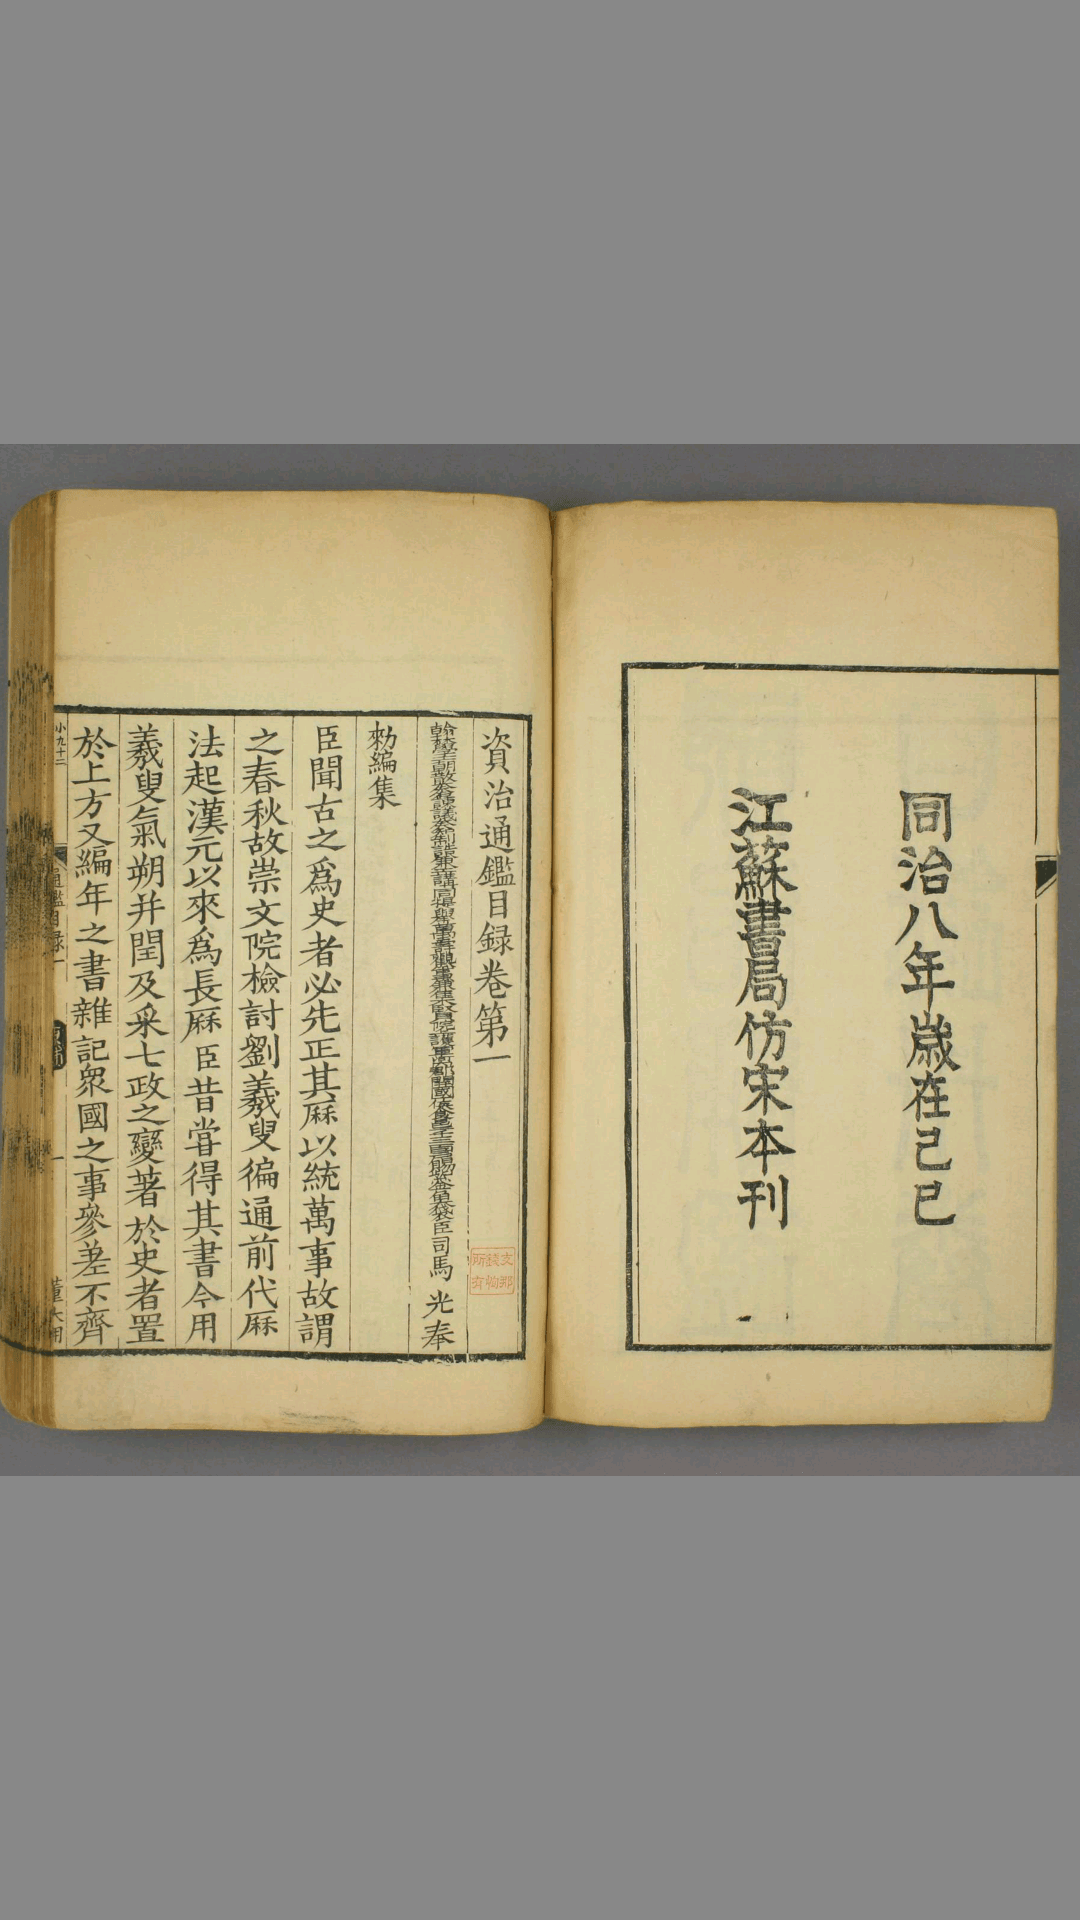 同治八年歲在己巳
江蘇書局仿宋本刊
資治通鑑目録卷第一
臣司馬 光奉
勑編集
臣聞古之爲史者必先正其厤以統萬事故謂
之春秋故崇文院檢討劉羲叟徧通前代厤
法起漢元以來爲長厤臣昔甞得其書今用
羲叟氣朔并閏及采七政之變著於史者置
於上方又編年之書雜記衆國之事參差不齊
小九十二
通鑑目录一
一
董大用
支那
錢恂
所有